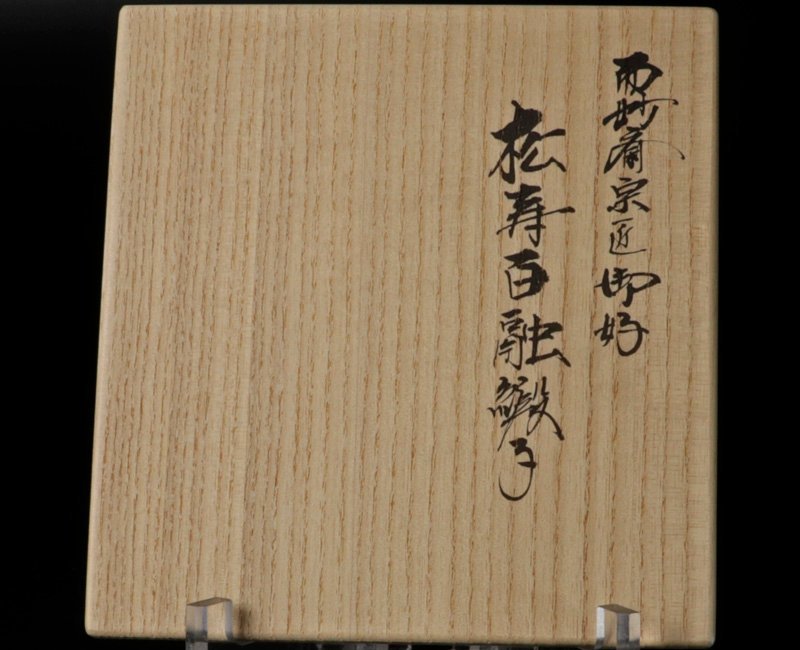 而妙斎宗匠御好
松寿百融緞子